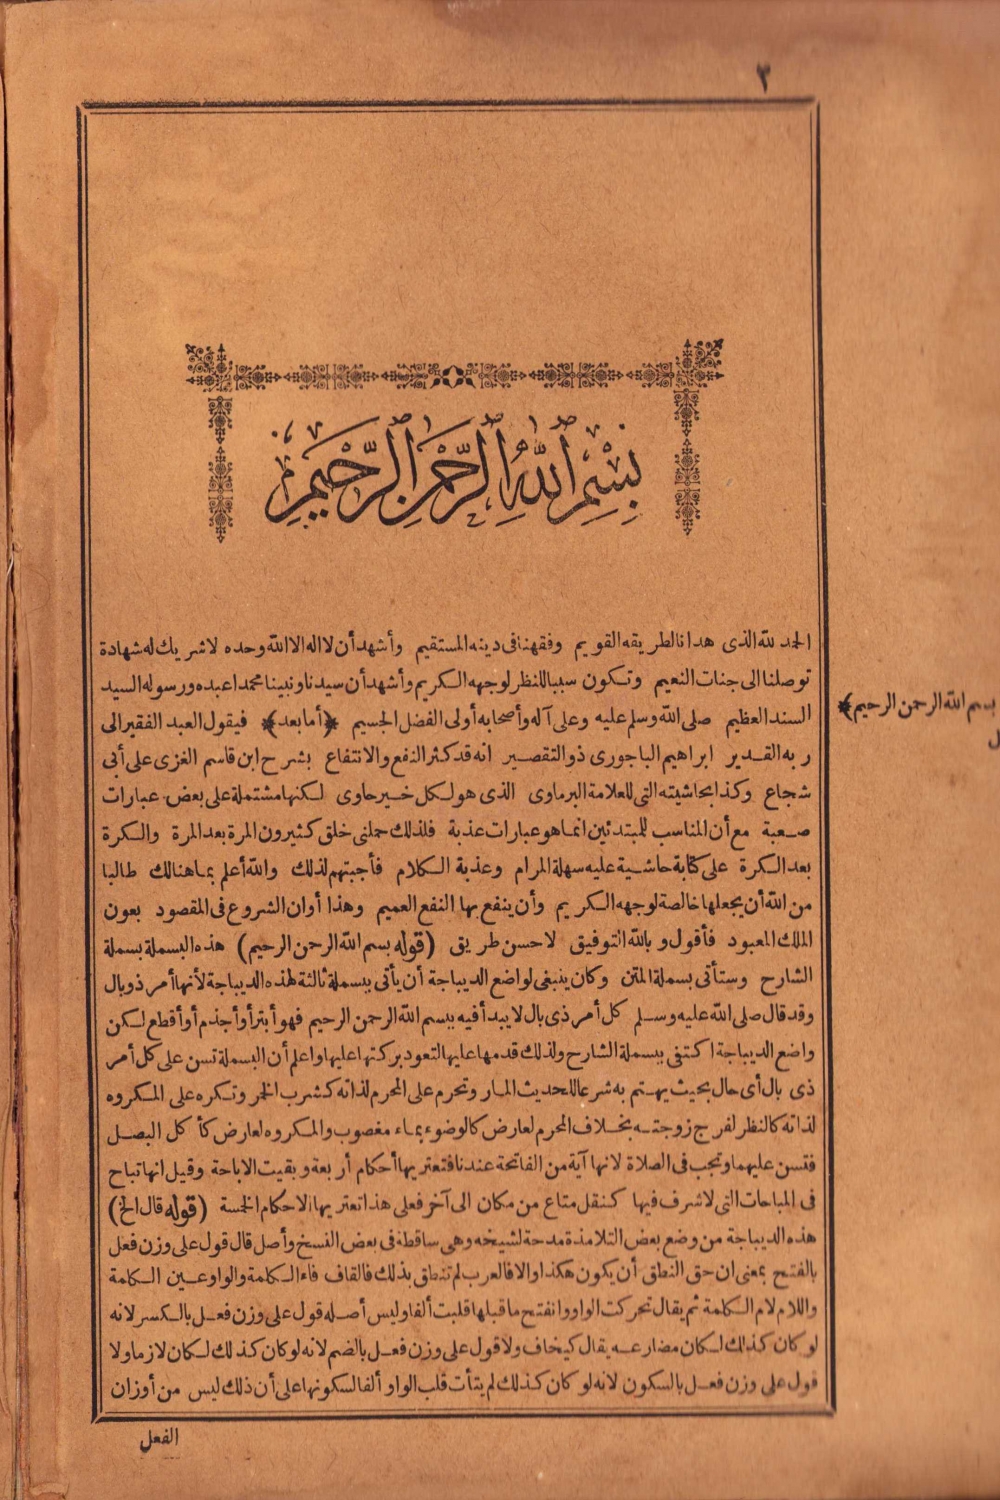 ٢
بسم الله الرحمن الرحيم
الحمد لله الذى هدانا لطريقه القويم وفقهنا فى دينه المستقيم وأشهد أن لا اله الا الله وحده لا شريك له شهادة
توصلنا الى جنات النعيم وتكون سببا للنظر لوجهه الكريم وأشهد أن سيدنا ونبينا محمدا عبده ورسوله السيد
السند العظيم صلى الله وسلم عليه وعلى آله وأصحابه أولى الفضل الجسيم ﴿أما بعد﴾ فيقول العبد الفقير الى
ربه القدير ابراهيم الباجورى ذو التقصير انه قد كثر النفع والانتفاع بشرح ابن قاسم الغزى على أبى
شجاع وكذا بحاشيته التى للعلامة البرماوى الذى هو لكل خير حاوى لكنها مشتملة على بعض عبارات
صعبة مع أن المناسب للمبتدئين انما هو عبارات عذبة فلذلك حملنى خلق كثيرون المرة بعد المرة والكرة
بعد الكرة على كتابة حاشية عليه سهلة المرام وعذبة الكلام فأجبتهم لذلك والله أعلم بما هنالك طالبا
من الله أن يجعلها خالصة لوجهه الكريم وأن ينفع بها النفع العميم وهذا أوان الشروع فى المقصود بعون
الملك المعبود فأقول وبالله التوفيق لاحسن طريق (قوله بسم الله الرحمن الرحيم) هذه البسملة بسملة
الشارح وستأتى بسملة المتن وكان ينبغى لواضع الديباجة أن يأتى ببسملة ثالثة لهذه الديباجة لأنها أمر ذو بال
وقد قال صلى الله عليه وسلم كل أمر ذى بال لا يبدأ فيه ببسم الله الرحمن الرحيم فهو أبتر أو أجذم أو أقطع لكن
واضع الديباجة اكتفى ببسملة الشارح ولذلك قدمها عليها لتعود بركتها عليها واعلم أن البسملة تسن على كل أمر
ذى بال أى حال بحيث يهتم به شرعا للحديث المار وتحرم على المحرم لذاته كشرب الخمر وتكره على المكروه
لذاته كالنظر لفرج زوجته بخلاف المحرم لعارض كالوضوء بماء مغصوب والمكروه لعارض كأكل البصل
فتسن عليهما وتجب فى الصلاة لانها آية من الفاتحة عندنا فتعتريها أحكام أربعة وبقيت الاباحة وقيل انها تباح
فى المباحات التى لا شرف فيها كنقل متاع من مكان الى آخر فعلى هذا تعتريها الاحكام الخمسة (قوله قال الخ)
هذه الديباجة من وضع بعض التلامذة مدحة لشيخه وهى ساقطة فى بعض النسخ وأصل قال قول على وزن فعل
بالفتح بمعنى ان حق النطق أن يكون هكذا والا فالعرب لم تنطق بذلك فالقاف فاء الكلمة والواو عين الكلمة
واللام لام الكلمة ثم يقال تحركت الواو وانفتح ما قبلها قلبت ألفا وليس أصله قول على وزن فعل بالكسر لانه
لو كان كذلك لكان مضارعه يقال كيخاف ولا قول على وزن فعل بالضم لانه لو كان كذلك لكان لازما ولا
قول على وزن فعل بالسكون لانه لو كان كذلك لم يتأت قلب الواو ألفا لسكونها على أن ذلك ليس من أوزان
الفعل
بسم الله الرحمن الرحيم﴾